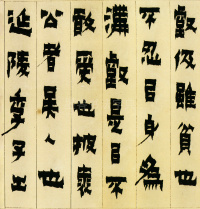 壑伋雖貧也
不忍㠯身為
溝壑是㠯不
敢受也披裘
公者吳人也
延陵季子出